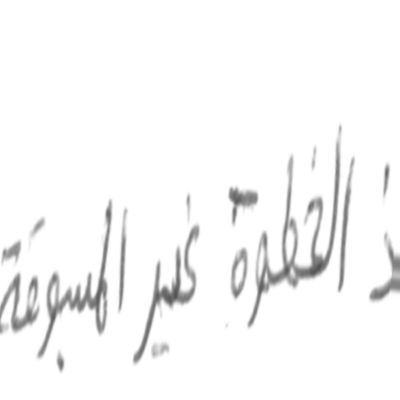 الخطوة غير المسبوقة